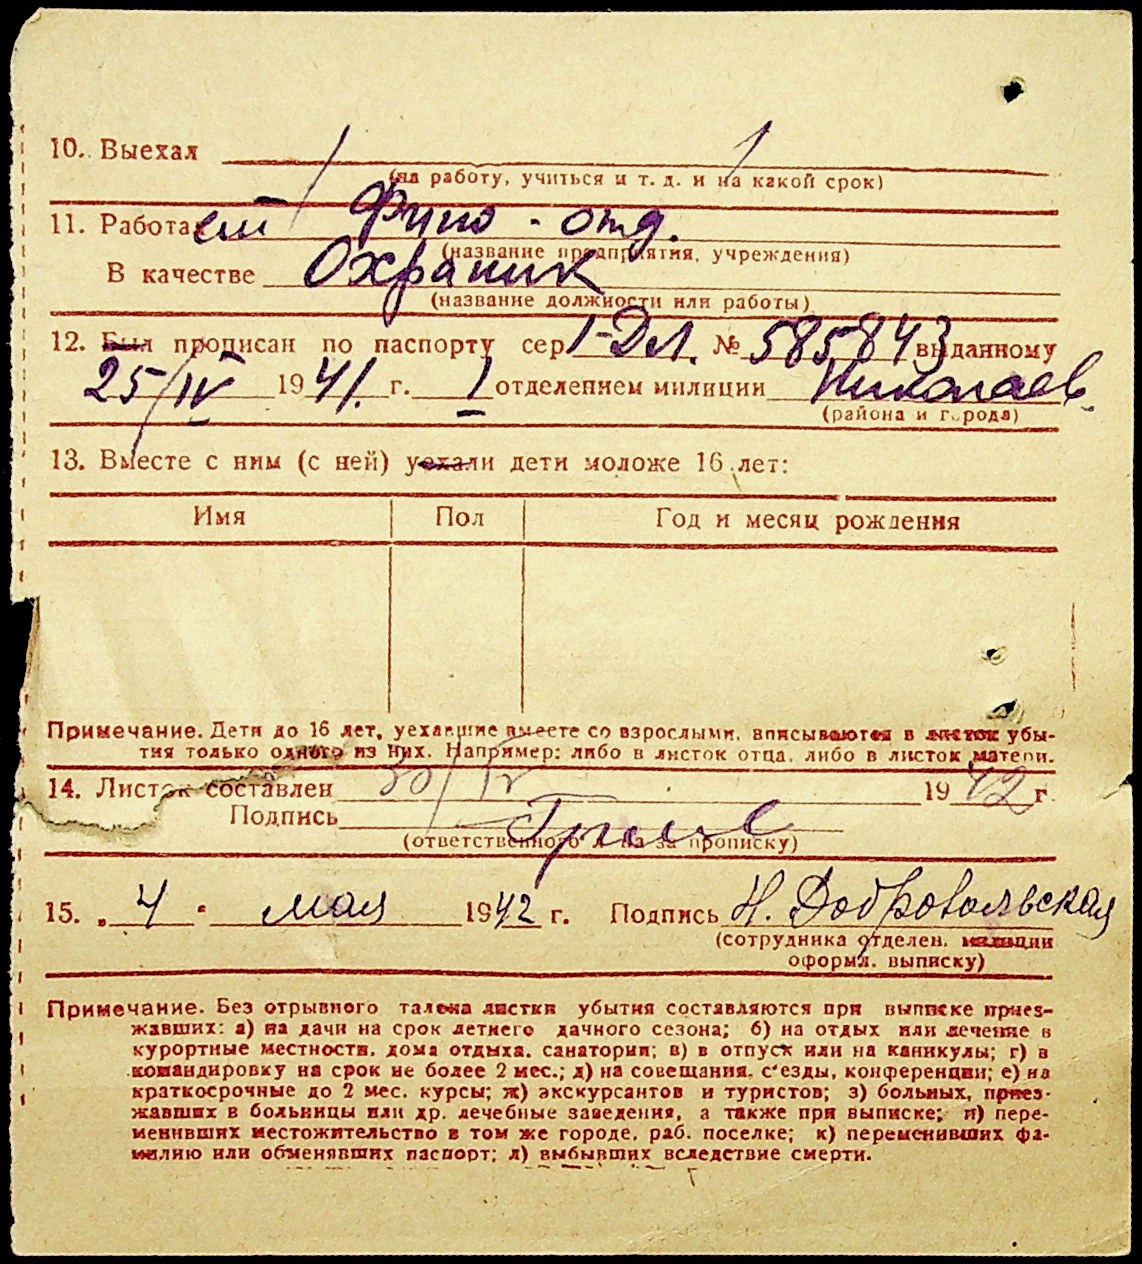 10. Выехал
(на работу, учиться и т. д. и на какой срок)
11. Работает Фино - отд.
(название предприятия, учреждения)
В качестве Охраник
(название должности или работы)
12. Был прописан по паспорту сер I-ДЛ. № 585843 выданному
25/IV 1941. г. 1 отделением милиции Николаев.
(района и города)
13. Вместе с ним (с ней) уехали дети моложе 16 лет:
Имя Пол Год и месяц рождения
Примечание. Дети до 16 лет, уехавшие вместе со взрослыми, вписываются в листок убы-
тия только одного из них. Например: либо в листок отца, либо в листок матери.
14. Листок составлен 30/IV 1942 г.
Подпись
(ответственного л на за прописку)
15. „ 4 " мая 1942 г. Подпись Н. Добровольская
(сотрудника отделен. милиции
оформл. выписку)
Примечание. Без отрывного талона листки убытия составляются при выписке приез-
жавших: а) на дачи на срок летнего дачного сезона; б) на отдых или лечение в
курортные местности, дома отдыха, санатории; в) в отпуск или на каникулы; г) в
командировку на срок не более 2 мес.; д) на совещания, с'езды, конференции; е) на
краткосрочные до 2 мес. курсы; ж) экскурсантов и туристов; з) больных, приез-
жавших в больницы или др. лечебные заведения, а также при выписке; и) пере-
менивших местожительство в том же городе, раб. поселке; к) переменивших фа-
милию или обменявших паспорт; л) выбывших вследствие смерти.